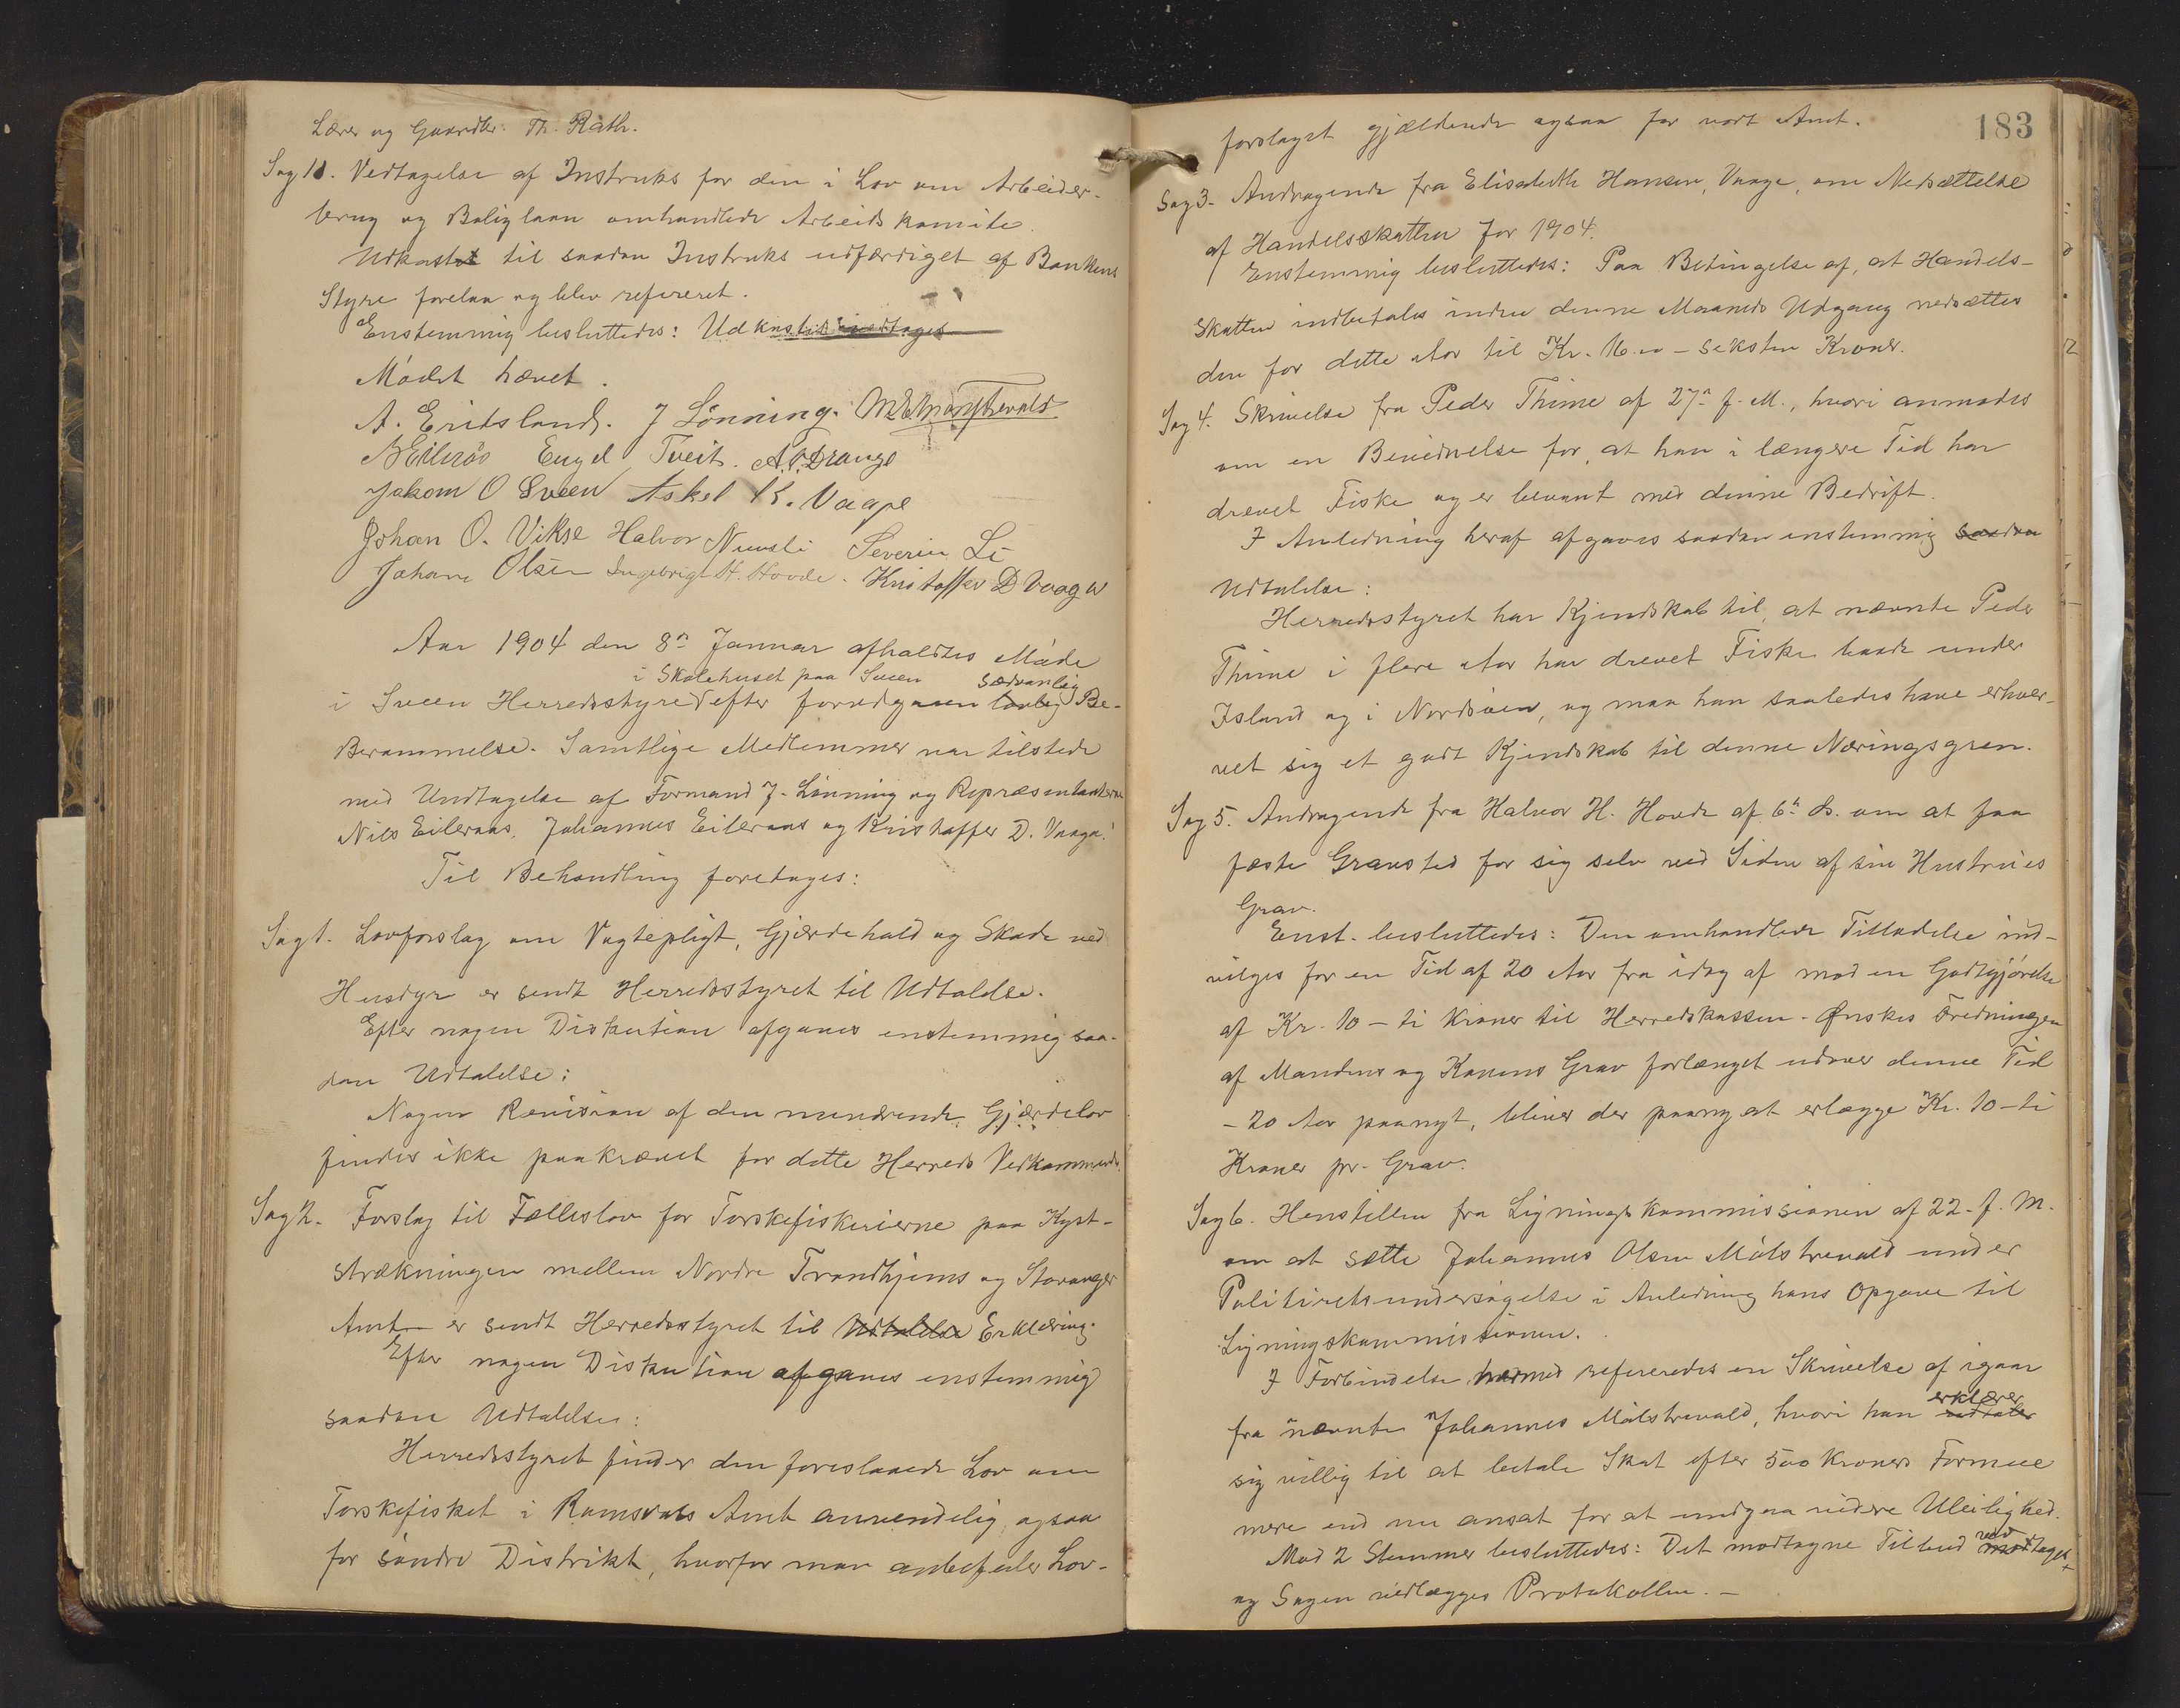 Lærer og Gaardbr: Th. Rath.
Sag 11. Vedtagelse af Instruks for den i Lov om Arbeider-
brug og Boliglaan omhandlede Arbeidskomite.
Udkastet til saadan Instruks udfærdiget af Bankens
Styre forelaa og blev refereret.
Enstemmig besluttedes: Udkastet vedtages
Mødet hævet.
A. Eridsland. J Lönning.
N Eileraas Engel Tveit. A. O. Drange
Jakom O Sveen Askel K. Vaage
Johan O. Vikse Halvor Nuvsli Severin Li
Johan Olsen Ingebrigt H. Hovde. Kristoffer D Vaage
Aar 1904 den 8n Januar afholdtes Møde
i Skolehuset paa Sveen sædvanlig
i Sveen Herredsstyre efter foredgaaen lovlig Be-
Berammelse. Samtlige Medlemmer var tilstede
med Undtagelse af Formand J. Lønning og Repræsentanterne
Nils Eileraas, Johannes Eileraas og Kristoffer D. Vaage.
Til Behandling foretages:
Sag 1. Lovforslag om Vogtepligt, Gjærdehold og Skade ved
Husdyr er sendt Herredsstyret til Udtalelse.
Efter nogen Diskution afgaves enstemmig saa-
dan Udtalelse:
Nogen Revision af den nuværende Gjærdelov
findes ikke paakrævet for dette Herreds Vedkommende.
Sag 2. Forslag til Fælleslov for Torskefiskerierne paa Kyst-
strækningen mellem Nordre Trondhjems og Stavanger
Amt er sendt Herredsstyret til Udtalelse Erklæring.
Efter nogen Diskution afgaves enstemmig
saadan Udtalelse:
Herredsstyret finder den foreslaaede Lov om
Torskefisket i Romsdals Amt anvendelig ogsaa
for søndre Distrikt, hvorfor man anbefaler Lov-
183
forslaget gjældende ogsaa for vort Amt.
Sag 3. Andragende fra Elisabeth Hansen, Vaage, om Nedsættelse
af Handelsskatten for 1904.
Enstemmig besluttedes: Paa Betingelse af, at Handels-
skatten indbetales inden denne Maaneds Udgang nedsættes
den for dette Aar til Kr. 16.00 – seksten Kroner.
Sag 4. Skrivelse fra Peder Thime af 27n f. M., hvori anmodes
om en Bevidnelse for, at han i længere Tid har
drevet Fiske og er bevant med denne Bedrift.
I Anledning heraf afgaves saadan enstemmig saadan
Udtalelse:
Herredsstyret har Kjendskab til, at nævnte Peder
Thime i flere Aar har drevet Fiske baade under
Island og i Nordsøen, og maa han saaledes have erhver-
vet sig et godt Kjendskab til denne Næringsgren.
Sag 5. Andragende fra Halvor H. Hovde af 6te ds. om at faa
fæste Gravsted for sig selv ved Siden af sin Hustrues
Grav.
Enst. besluttedes: Den omhandlede Tilladelse ind-
vilges for en Tid af 20 Aar fra idag af mod en Godtgjørelse
af Kr. 10 – ti Kroner til Herredskassen. Ønskes Fredningen
af Mandens og Konens Grav forlænget udover denne Tid
– 20 Aar paanyt, bliver der paany at erlægge Kr. 10 – ti
Kroner pr. Grav.
Sag 6. Henstillen fra Ligningskommissionen af 22. f. M.
om at sætte Johannes Olsen Målstrevold under
Politiretsundersøgelse i Anledning hans Opgave til
Ligningskommissionen.
I Forbindelse hermed refereredes en Skrivelse af igaar
fra nævnte Johannes Målstrevold, hvori han udtaler erklærer
sig villig til at betale Skat efter 500 Kroners Formue
mere end nu ansat for at undgaa videre Uleilighed.
Mod 2 Stemmer besluttedes: Det modtagne Tilbud modtages ved
og Sagen vedlægges Protokollen. –